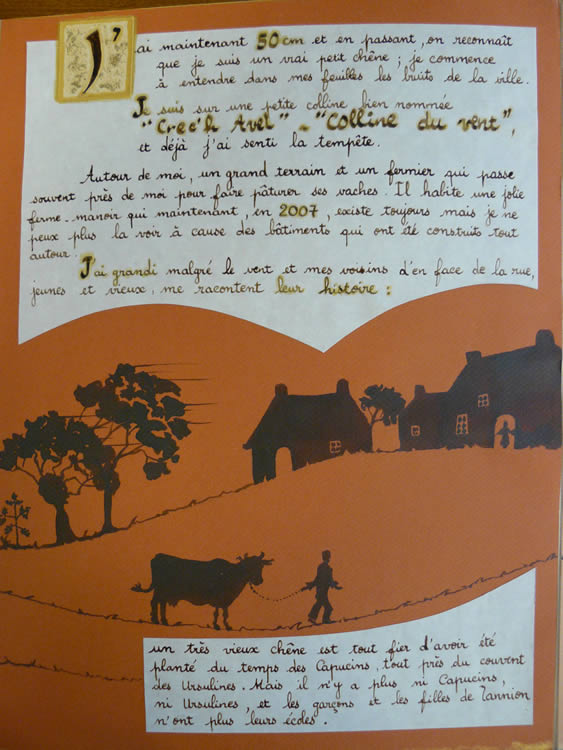 J'
ai maintenant 50 cm et en passant, on reconnaît
que je suis un vrai petit chêne ; je commence
à entendre dans mes feuilles les bruits de la ville.
Je suis sur une petite colline bien nommée
"Crec'h Avel" - "Colline du vent",
et déjà j'ai senti la tempête.
Autour de moi, un grand terrain et un fermier qui passe
souvent près de moi pour faire pâturer ses vaches. Il habite une jolie
ferme-manoir qui maintenant, en 2007, existe toujours mais je ne
peux plus la voir à cause des bâtiments qui ont été construits tout
autour.
J'ai grandi malgré le vent et mes voisins d'en face de la rue,
jeunes et vieux, me racontent leur histoire :
un très vieux chêne est tout fier d'avoir été
planté du temps des Capucins, tout près du couvent
des Ursulines. Mais il n'y a plus ni Capucins,
ni Ursulines, et les garçons et les filles de Lannion
n'ont plus leurs écoles.